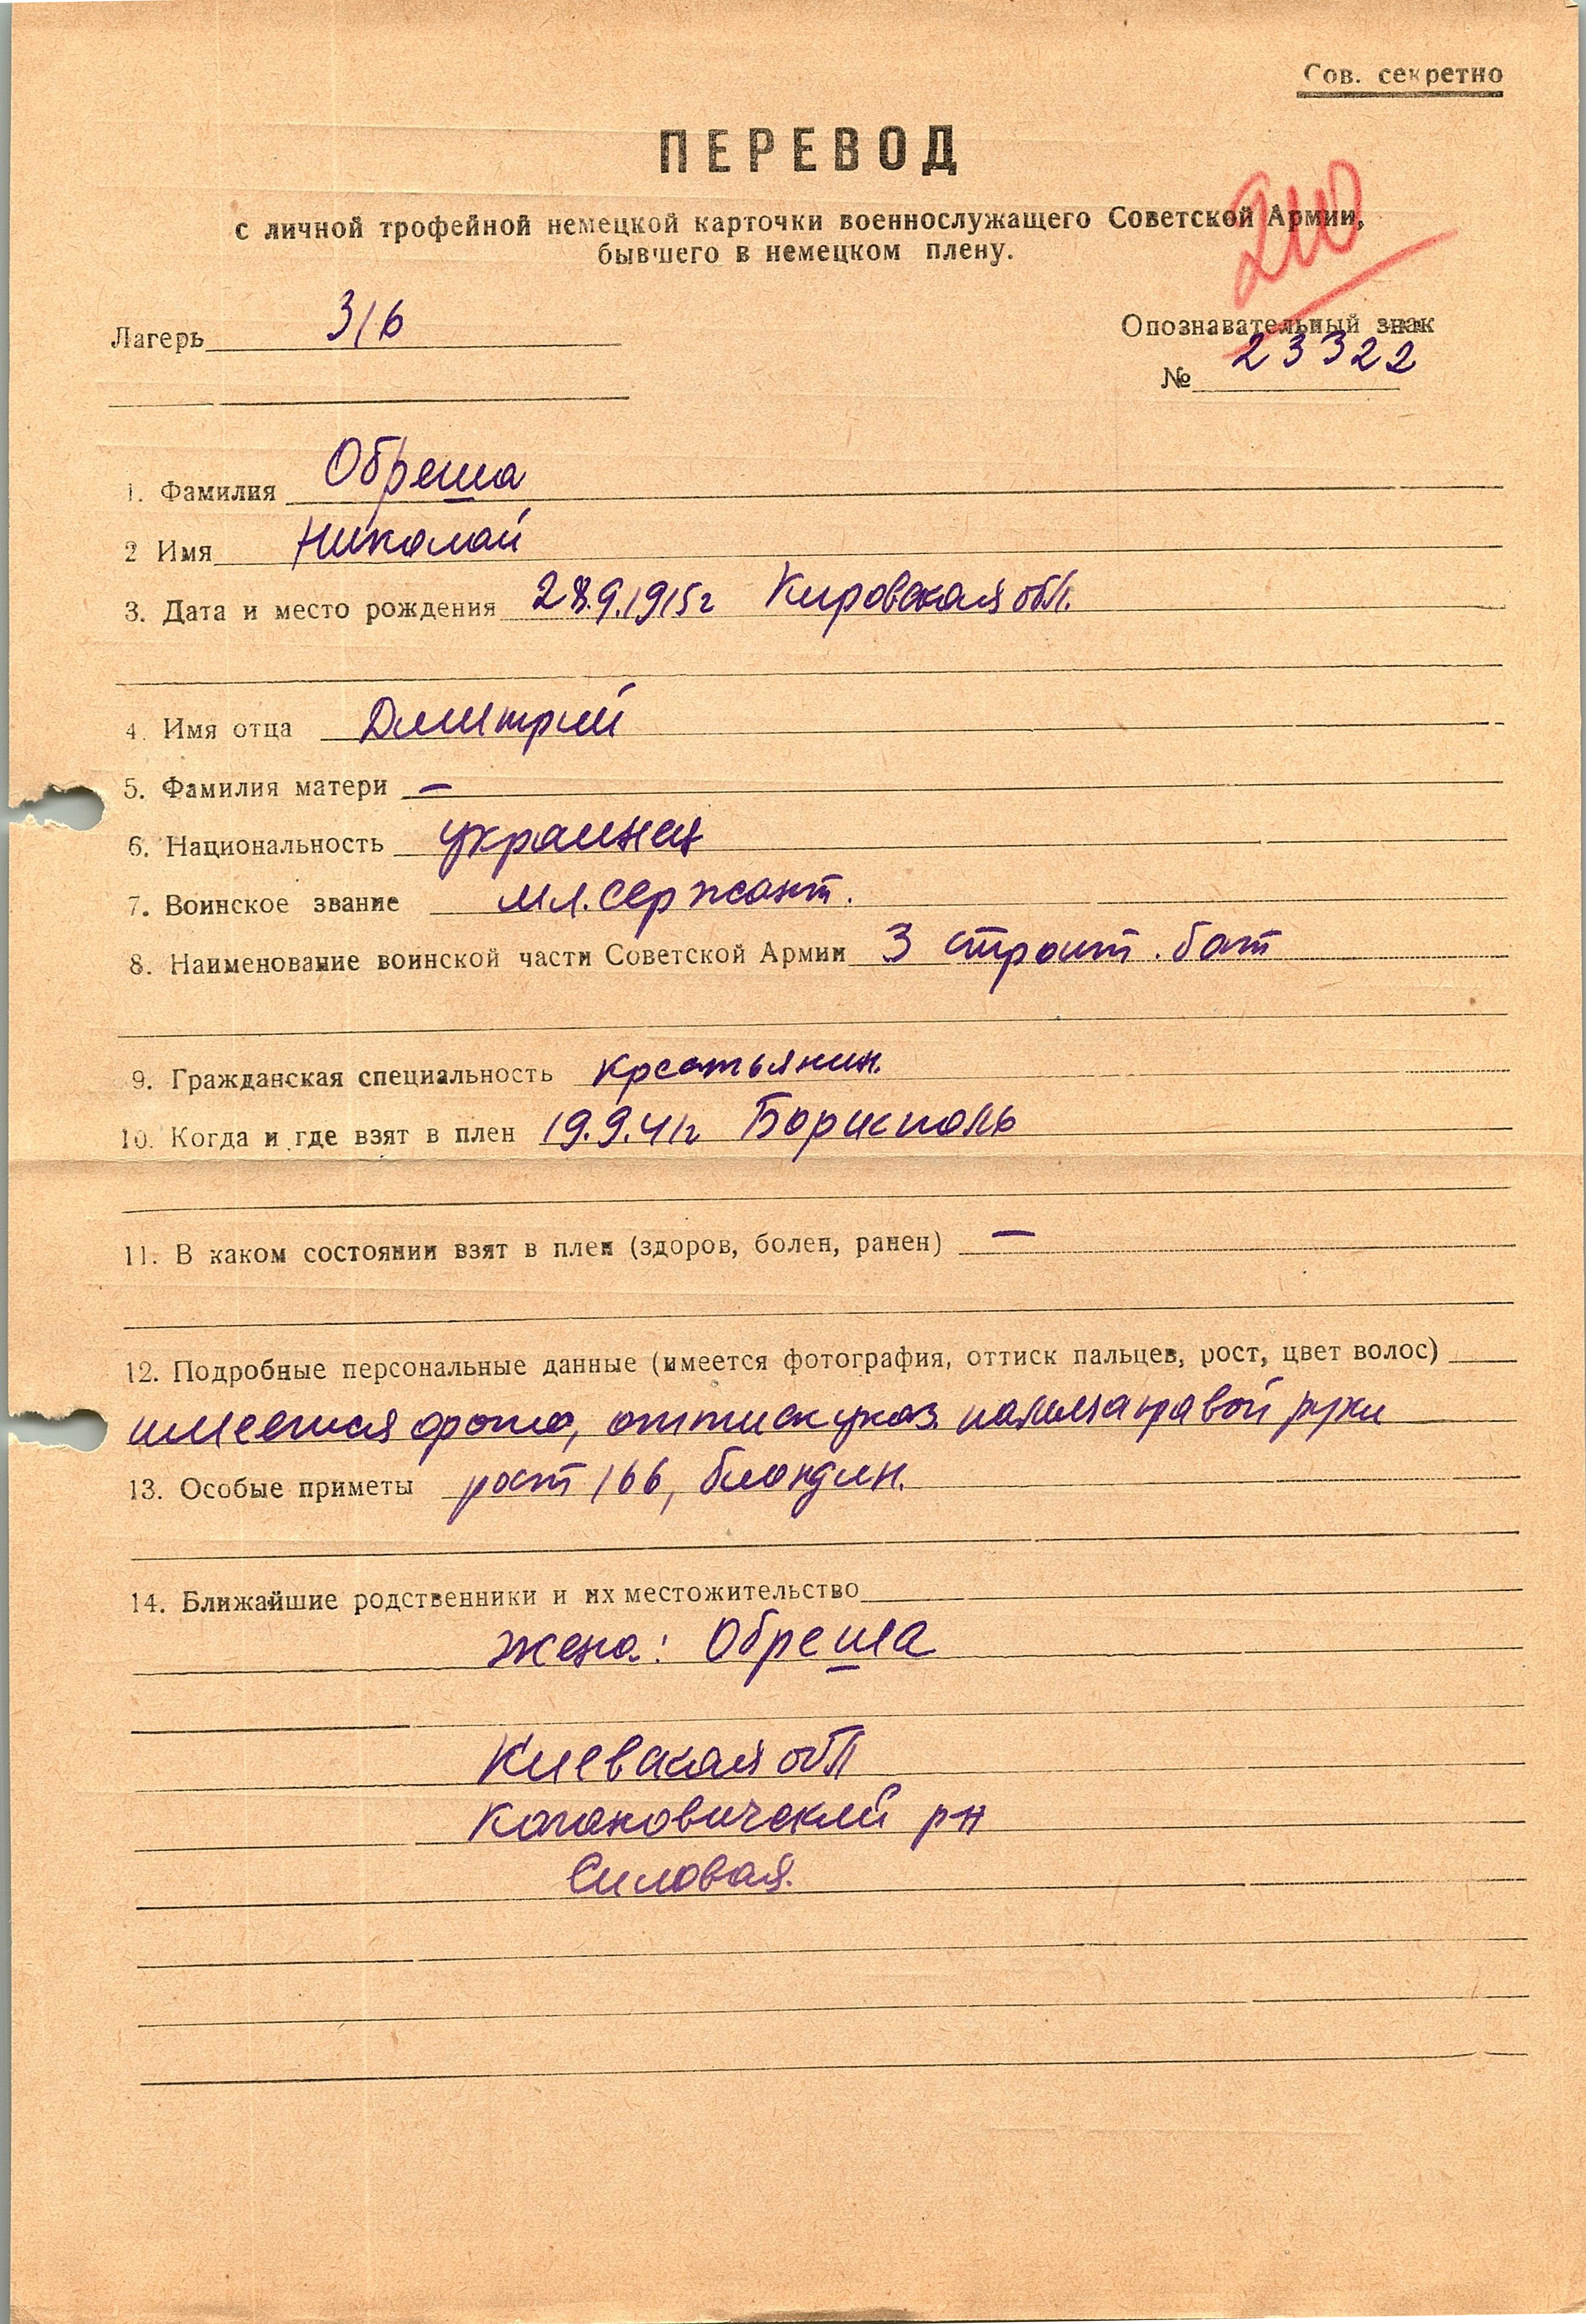 Сов. секретно
ПЕРЕВОД
с личной трофейной немецкой карточки военнослужащего Советской Армии,
бывшего в немецком плену.
210
Лагерь 316
Опознавательный знак
№ 23322
1. Фамилия Обреша
2 Имя Николай
3. Дата и место рождения 28.9.1915г Кировская обл.
4. Имя отца Дмитрий
5. Фамилия матери —
6. Национальность украинец
7. Воинское звание мл. сержант.
8. Наименование воинской части Советской Армии 3 строит. бат
9. Гражданская специальность крестьянин.
10. Когда и где взят в плен 19.9.41г Борисполь
11. В каком состоянии взят в плен (здоров, болен, ранен) —
12. Подробные персональные данные (имеется фотография, оттиск пальцев, рост, цвет волос)
имеется фото, оттиск указ. пальца правой руки
13. Особые приметы рост 166, блондин.
14. Ближайшие родственники и их местожительство
жена: Обреша
Киевская обл
Кагановический р-н
Силовая.